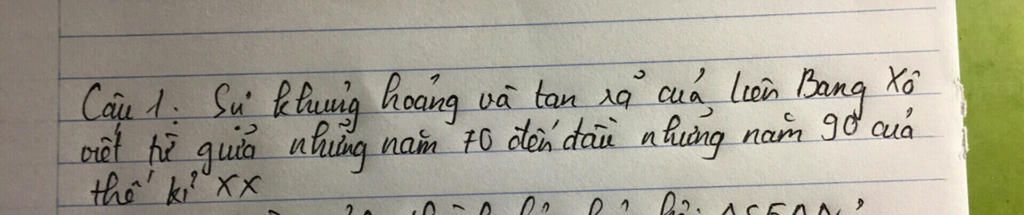 Câu 1: Sự khủng hoảng và tan rả của liên Bang Xô
viết từ giữa những năm 70 đến đầu những năm 90 của
thế kỉ XX